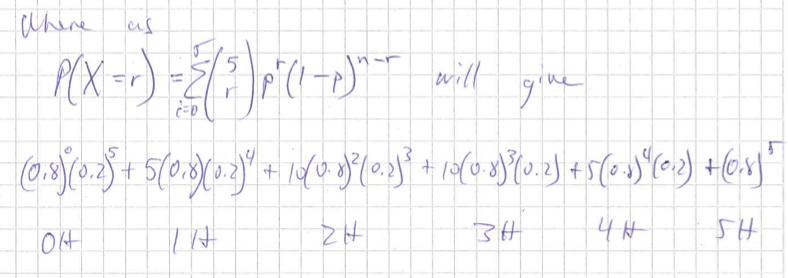 Where as
P(X=r) = \sum_{i=0}^{5} \binom{5}{r} p^r (1-p)^{n-r} will give
(0.8)^0(0.2)^5 + 5(0.8)(0.2)^4 + 10(0.8)^2(0.2)^3 + 10(0.8)^3(0.2) + 5(0.8)^4(0.2) + (0.8)^5
0H 1H 2H 3H 4H 5H